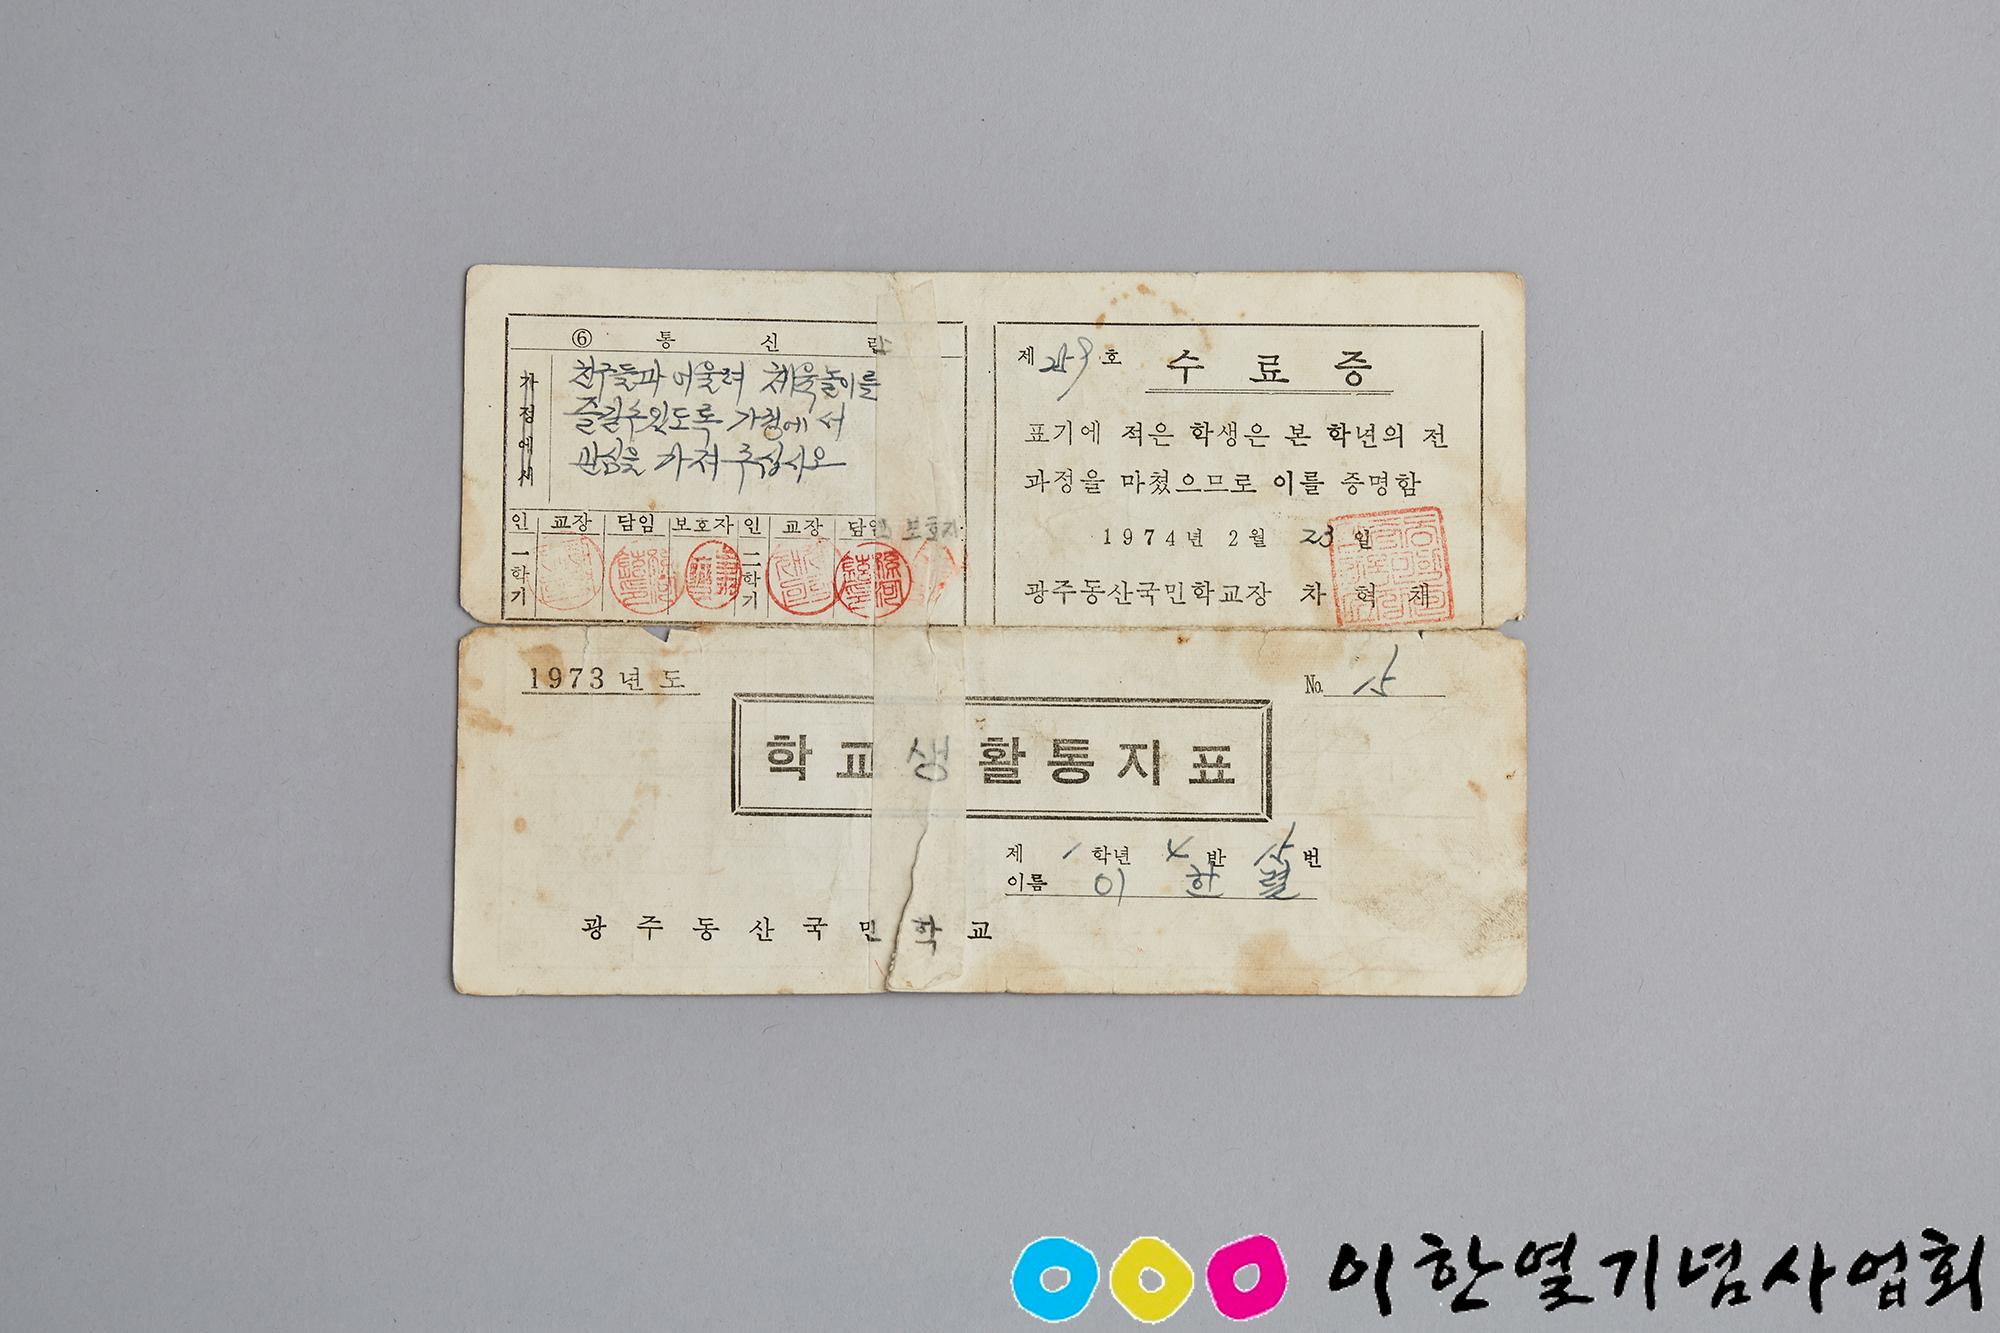 ⑥ 통 신 란
가정에서
친구들과 어울려 체육놀이를
즐길수있도록 가정에서
관심을 가져 주십시오
인 교장 담임 보호자 인 교장 담임 보호자
一학기 二학기
제 259 호 수료증
표기에 적은 학생은 본 학년의 전
과정을 마쳤으므로 이를 증명함
1974년 2월 23일
광주동산국민학교장 차혁채
1973년도
No. 15
학교생활통지표
제 1 학년 4 반 15 번
이름 이 한 렬
광주동산국민학교
이한열기념사업회